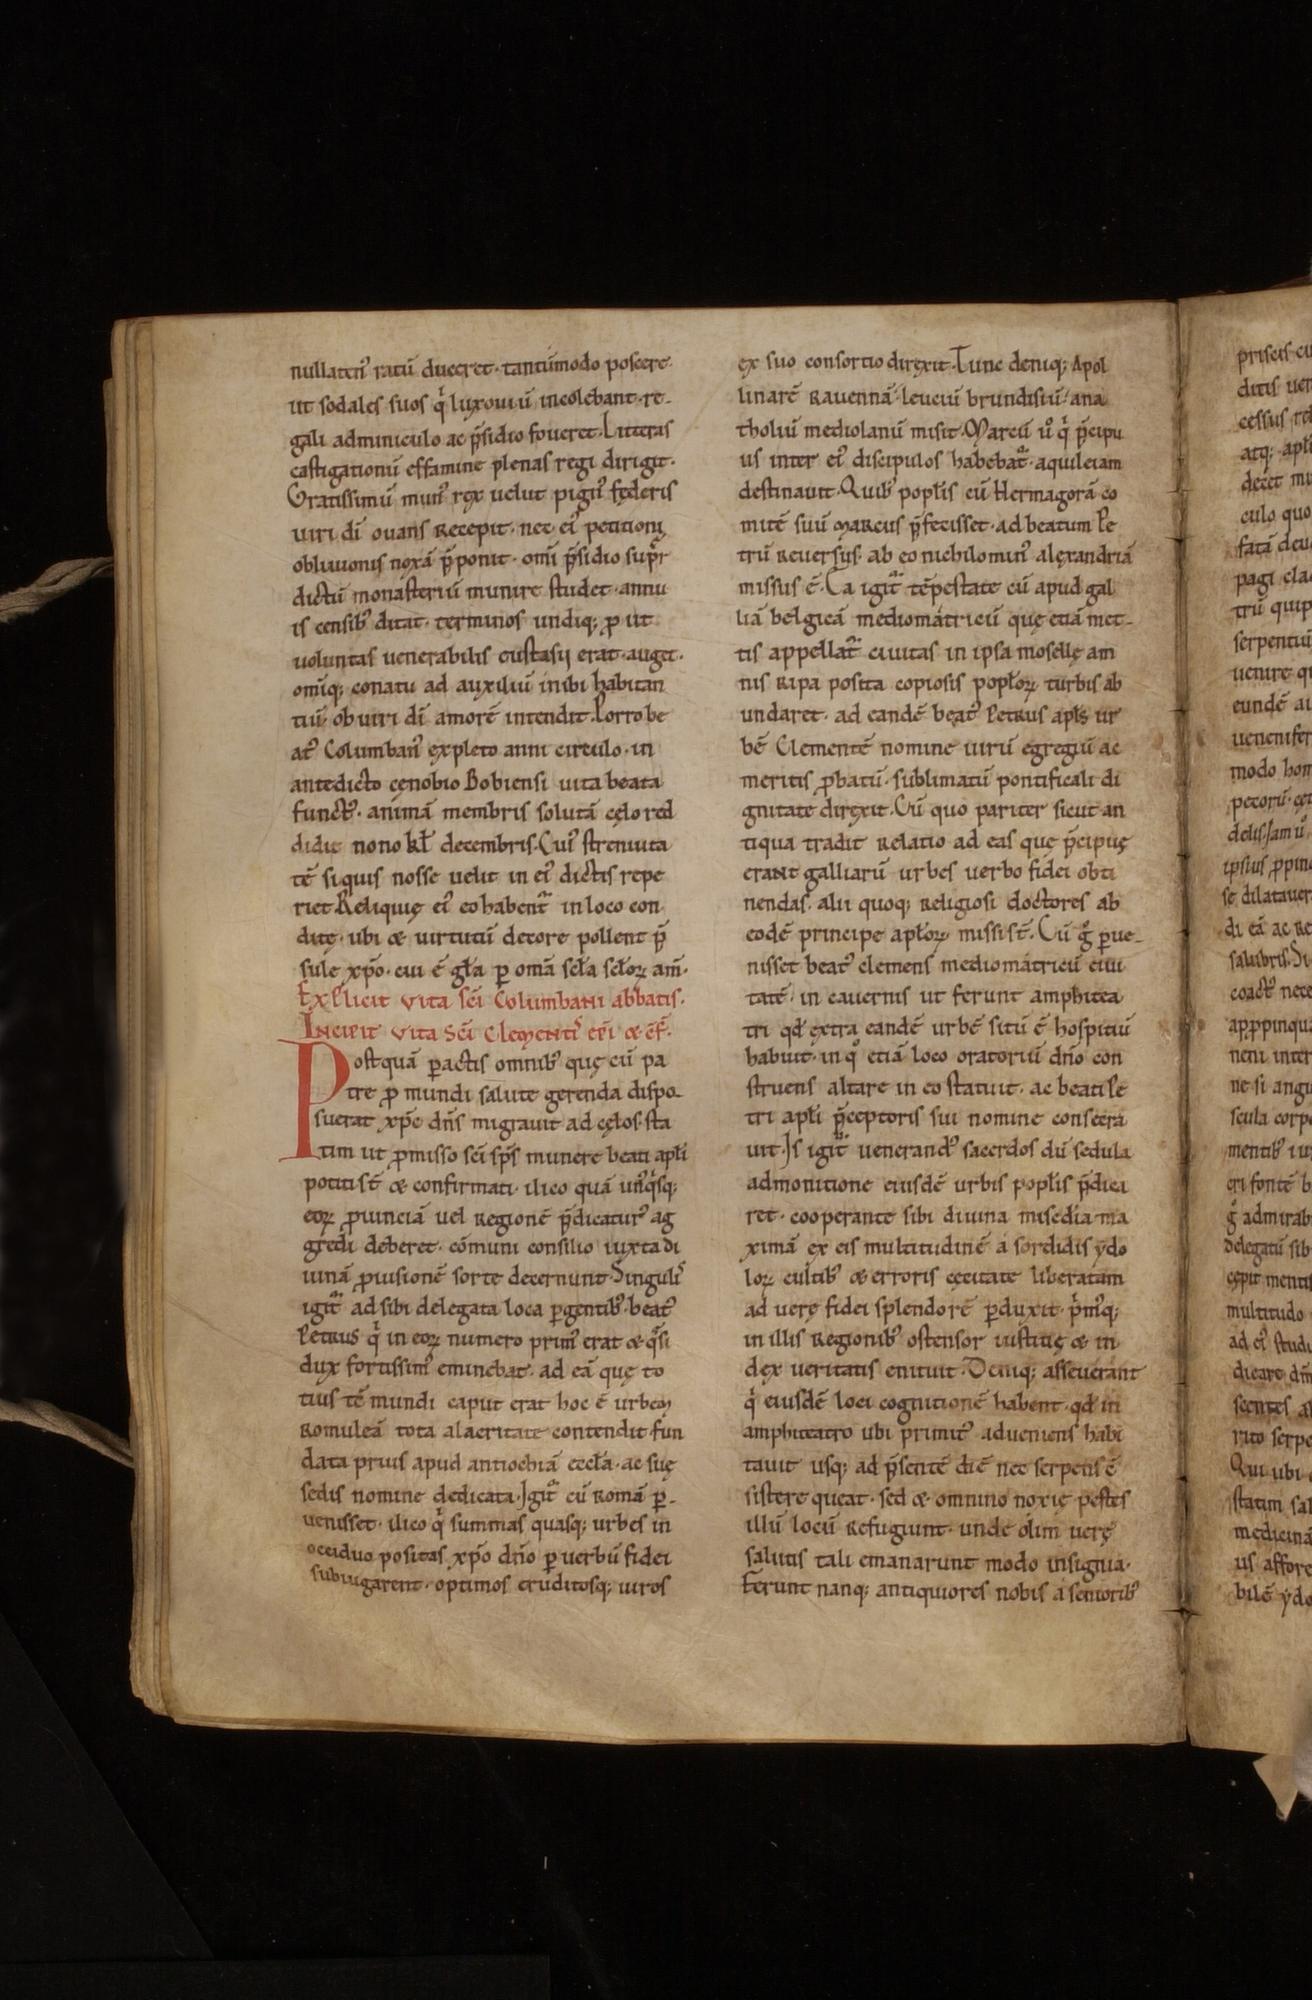 nullaten᷒ ratū duceret · tantūmodo poscere ·
ut sodales suos q̇ luxouiū incolebant · re-
gali adminiculo ac p̄sidio foueret · Litteras
castigationū effamine plenas regi dirigit ·
Gratissimū mun᷒ rex uelut pign᷒ fęderis
uiri dī ouans Recepit · nec ei᷒ petitioni
obliuionis noxā p̄ponit · omī p̄sidio sup̄r
dictū monasteriū munire studet · annu
is censib᷒ ditat · terminos undiq; ꝓ ut
uoluntas uenerabilis eustasii erat · auget ·
omīq; conatu ad auxiliū inibi habitan
tiū · ob uiri dī amorē intendit · Porro be
at᷒ Columban᷒ expleto anni circulo · in
antedicto cęnobio Bobiensi uita beata
funct᷒ · animā membris solutā cęlo red
didit nono kł decembris · Cui᷒ strenuita
tē siquis nosse uelit in ei᷒ dictis repe
riet · Reliquię ei᷒ eo habent᷑ in loco con
ditę · ubi & uirtutū decore pollent p̄
sule xp̄o · cui ē gła ꝑ omā scła scłoꝝ am̄ ·
Explicit vita sc̄i Columbani abbatis ·
Incipit vita Sc̄i Clementi᷒ ep̄i & cf̄ ·
Postquā ꝑactis omnib᷒ quę cū pa
tre ꝓ mundi salute gerenda dispo-
suerat xp̄c dn̄s migrauit ad cęlos · sta
tim ut ꝓmisso sc̄i sp̄s munere beati apłi
potiti st̄ & confirmati · ilico quā un᷒q̇sq;
eoꝝ ꝓuinciā uel Regionē p̄dicatur᷒ ag
gredi deberet · cōmuni consilio iuxta di
uinā ꝓuisionē sorte decernunt · Singuli᷒
igit᷑ ad sibi delegata loca ꝑgentib᷒ · beat᷒
Petrus q̇ in eoꝝ numero prim᷒ erat & q̇si
dux fortissim᷒ eminebat · ad eā quę to
tius tc̄ mundi caput erat hoc ē urbem
Romuleā tota alacritate contendit fun
data prius apud antiochiā eccła · ac suę
sedis nomine dedicata · Igit᷑ cū Romā ꝑ-
uenisset · ilico q̇ summas quasq; urbes in
occiduo positas xp̄o dn̄o ꝑ uerbū fidei
subiugarent · optimos eruditosq; uiros
ex suo consortio direxit · Tunc deniq; Apol
linarē Rauennā · leuciū brundisiū · ana
tholiū mediolanū misit · Marcū u̇ q̇ p̄cipu
us inter ei᷒ discipulos habebat᷑ · aquileiam
destinauit · Quib᷒ popłis cū Hermagorā co
mitē suū marcus p̄fecisset · ad beatum Pe
trū Reuersus · ab eo nichilomin᷒ alexandriā
missus ē · Ea igit᷑ tēpestate cū apud gal
liā belgicā mediomatricū quę etiā met-
tis appellat᷑ ciuitas in ipsa mosellę am
nis Ripa posita copiosis popłoꝝ turbis ab
undaret · ad eandē beat᷒ Petrus apłs ur
bē Clementē nomine uirū egregiū ac
meritis ꝓbatū · sublimatū pontificali di
gnitate direxit · Cū quo pariter sicut an
tiqua tradit Relatio ad eas que p̄cipuę
erant galliarū urbes uerbo fidei obti
nendas · alii quoq; Religiosi doctores ab
eodē principe apłoꝝ · missi st̄ · Cū g̊ ꝑue-
nisset beat᷒ clemens mediomatricū ciui
tatē · in cauernis ut ferunt amphitea
tri qđ extra eandē urbē sitū ē hospitiū
habuit · in q̊ etiā loco oratoriū dn̄o con
struens altare in eo statuit · ac beati Pe
tri apłi p̄ceptoris sui nomine consecra
uit · Is igit᷑ uenerand᷒ sacerdos dū sedula
admonitione eiusdē urbis popłis p̄dica
ret · cooperante sibi diuina miscđia ma
ximā ex eis multitudinē a sordidis ydo
loꝝ cultib᷒ & erroris cęcitate liberatam
ad uerę fidei splendorē ꝑduxit · p̄m᷒q;
in illis Regionib᷒ ostensor iustitię & in
dex ueritatis enituit · Deniq; asseuerant
q̇ eiusdē loci cognitionē habent · qđ in
amphiteatro ubi primit᷒ adueniens habi
tauit usq; ad p̄sentē diē nec serpens c̄
sistere queat · sed & omnino noxię pestes
illū locū Refugiunt · unde olim uerę
salutis tali emanarunt modo insignia ·
Ferunt nanq; antiquiores nobis a seniorib᷒